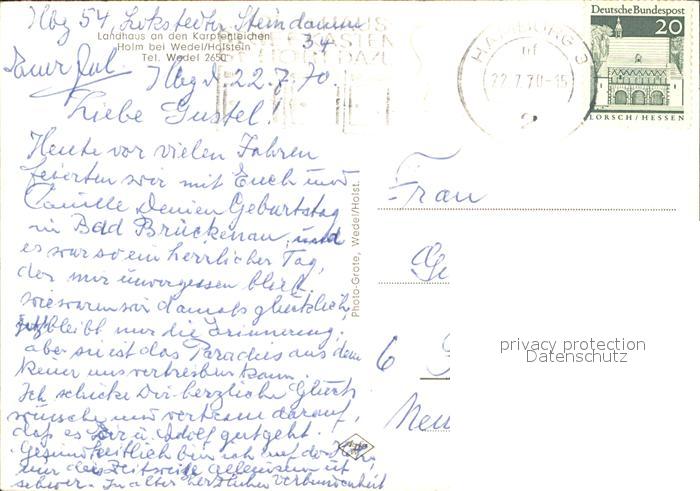 Hbg 54, Lokstedter Steindamm
34
Landhaus an den Karpfenteichen
Holm bei Wedel/Holstein
Tel. Wedel 2650
Hbg d. 22.7.70.
Liebe Gustel!
Heute vor vielen Jahren
feierten wir mit Euch und
Camille Deinen Geburtstag
in Bad Brückenau, und
es war so ein herrlicher Tag,
der mir unvergessen blieb.
wie waren wir damals glücklich,
jetzt bleibt nur die Erinnerung.
aber sie ist das Paradies aus dem
keiner uns vertreiben kann.
Ich schicke Dir herzliche Glück
wünsche und vertraue darauf,
daß es Dir u. Adolf gut geht.
Gesundheitlich bin ich auf der Höhe,
nur das zeitweise Alleinsein ist
schwer. In alter herzlicher Verbundenheit
Photo-Grote, Wedel/Holst.
HAMBURG 3
uf
22.7.70-15
Deutsche Bundespost
20
LORSCH/HESSEN
Frau
6
privacy protection
Datenschutz